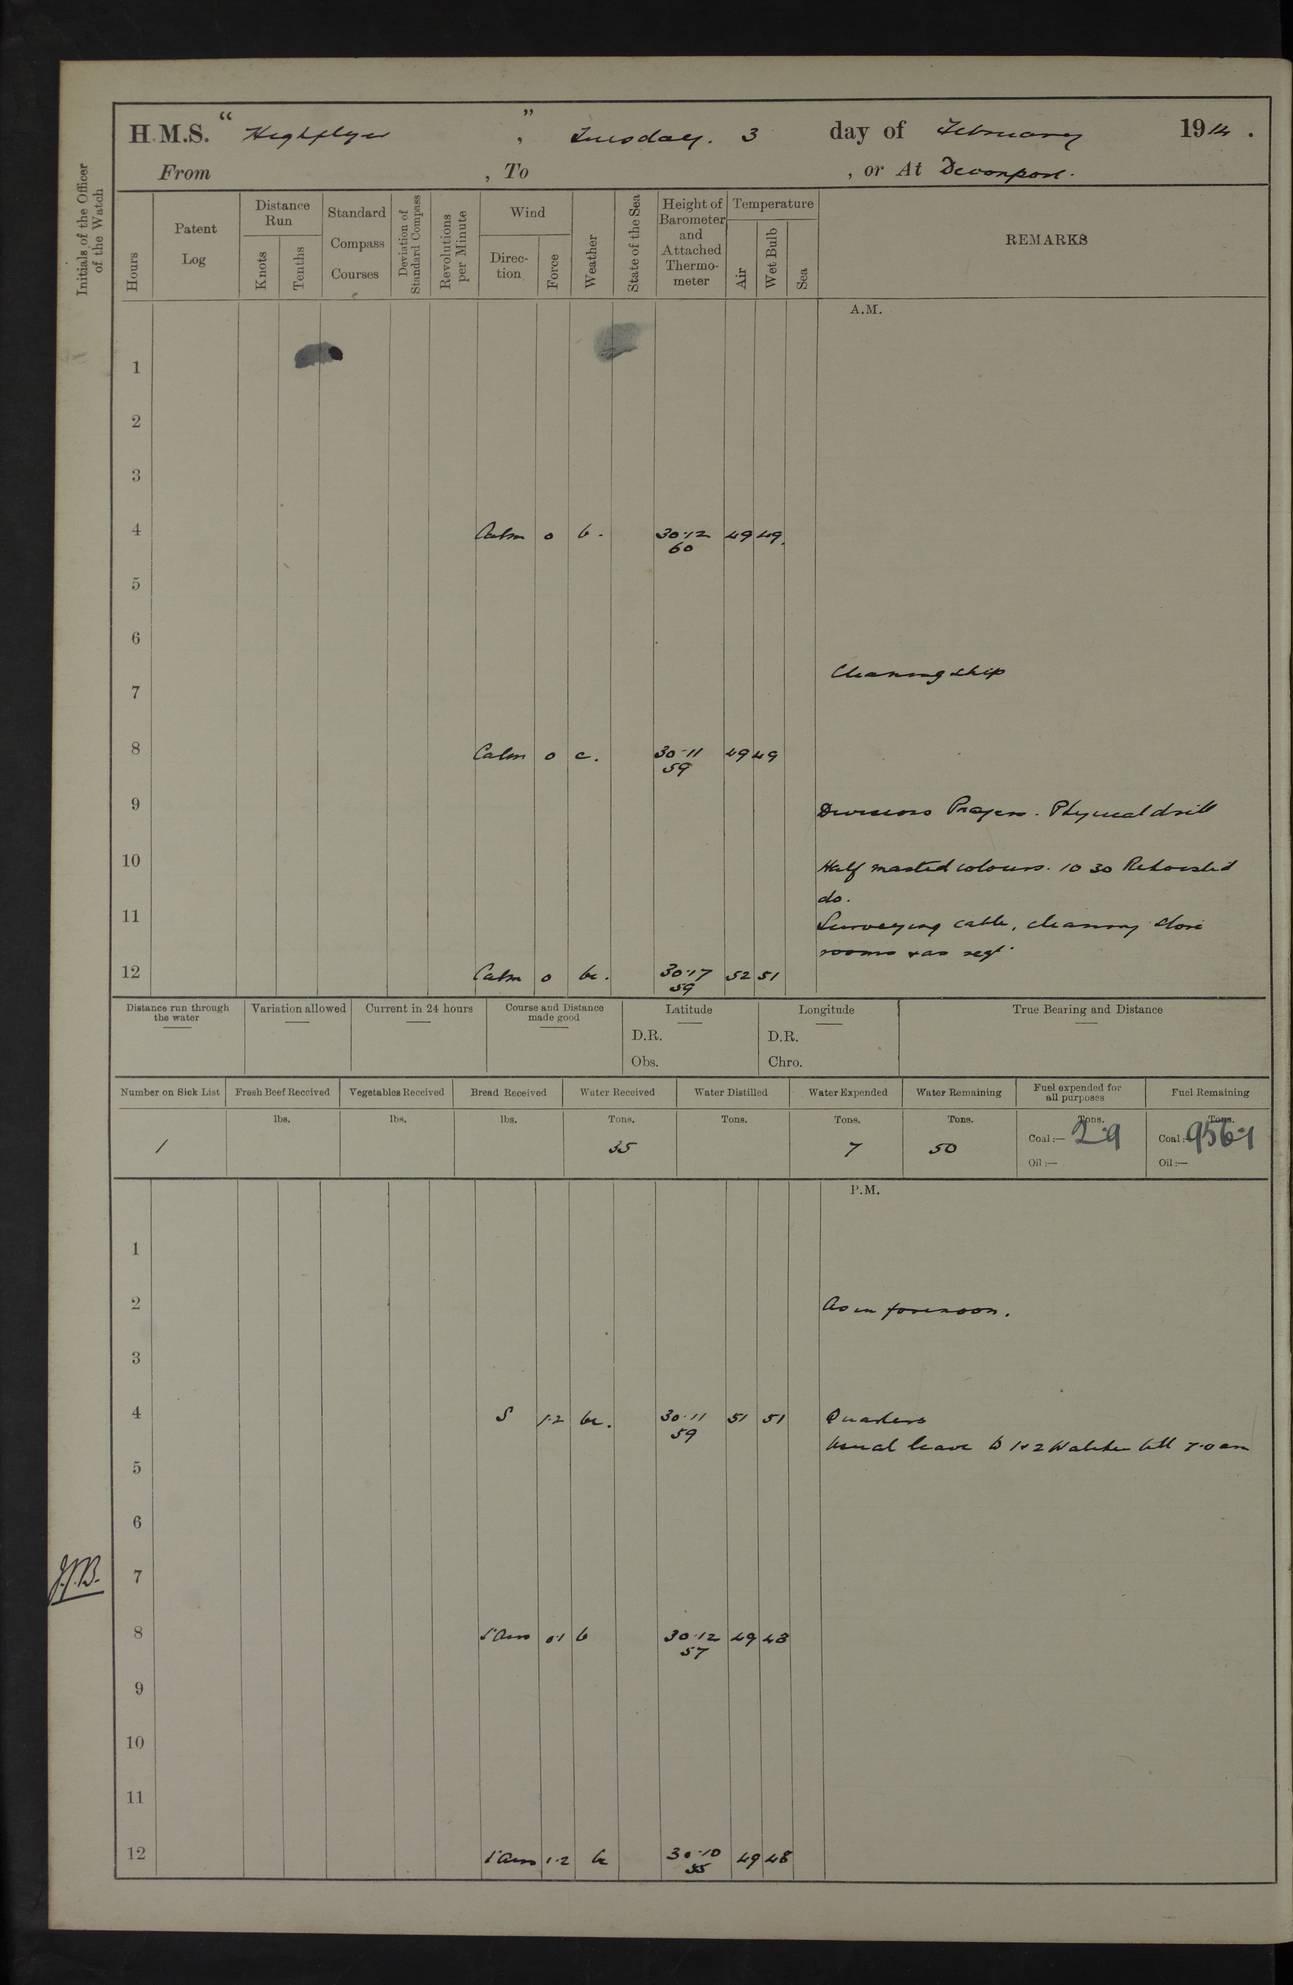 H.M.S. “ Highflyer ” , Tuesday. 3 day of February 1914 .
From , To , or At Devonport.
Initials of the Officer of the Watch
Hours
Patent Log
Distance Run
Knots
Tenths
Standard Compass Courses
Deviation of Standard Compass
Revolutions per Minute
Wind
Direction
Force
Weather
State of the Sea
Height of Barometer and Attached Thermometer
Temperature
Air
Wet Bulb
Sea
REMARKS
A.M.
1
2
3
4 Calm 0 b. 30.12 49 49
60
5
6
Cleaning ship
7
8 Calm 0 c. 30.11 49 49
59
9 Divisions Prayers. Physical drill
10 Half masted colours. 10 30 Rehoisted
do.
11 Surveying cable, cleaning store
rooms & as req.
12 Calm 0 bc. 30.17 52 51
59
Distance run through the water
Variation allowed
Current in 24 hours
Course and Distance made good
Latitude
D.R.
Obs.
Longitude
D.R.
Chro.
True Bearing and Distance
Number on Sick List
1
Fresh Beef Received
lbs.
Vegetables Received
lbs.
Bread Received
lbs.
Water Received
Tons.
35
Water Distilled
Tons.
Water Expended
Tons.
7
Water Remaining
Tons.
50
Fuel expended for all purposes
Tons.
Coal:— 2.9
Oil:—
Fuel Remaining
Tons.
Coal:— 956.1
Oil:—
P.M.
1
2 As in forenoon.
3
4 S 1.2 bc. 30.11 51 51 Quarters
59
Usual leave to 1 & 2 Watches till 7.0 am
5
6
7
J.J.B.
8 0.1 b 30.12 49 48
57
9
10
11
12 1.2 bc 30.10 49 48
55